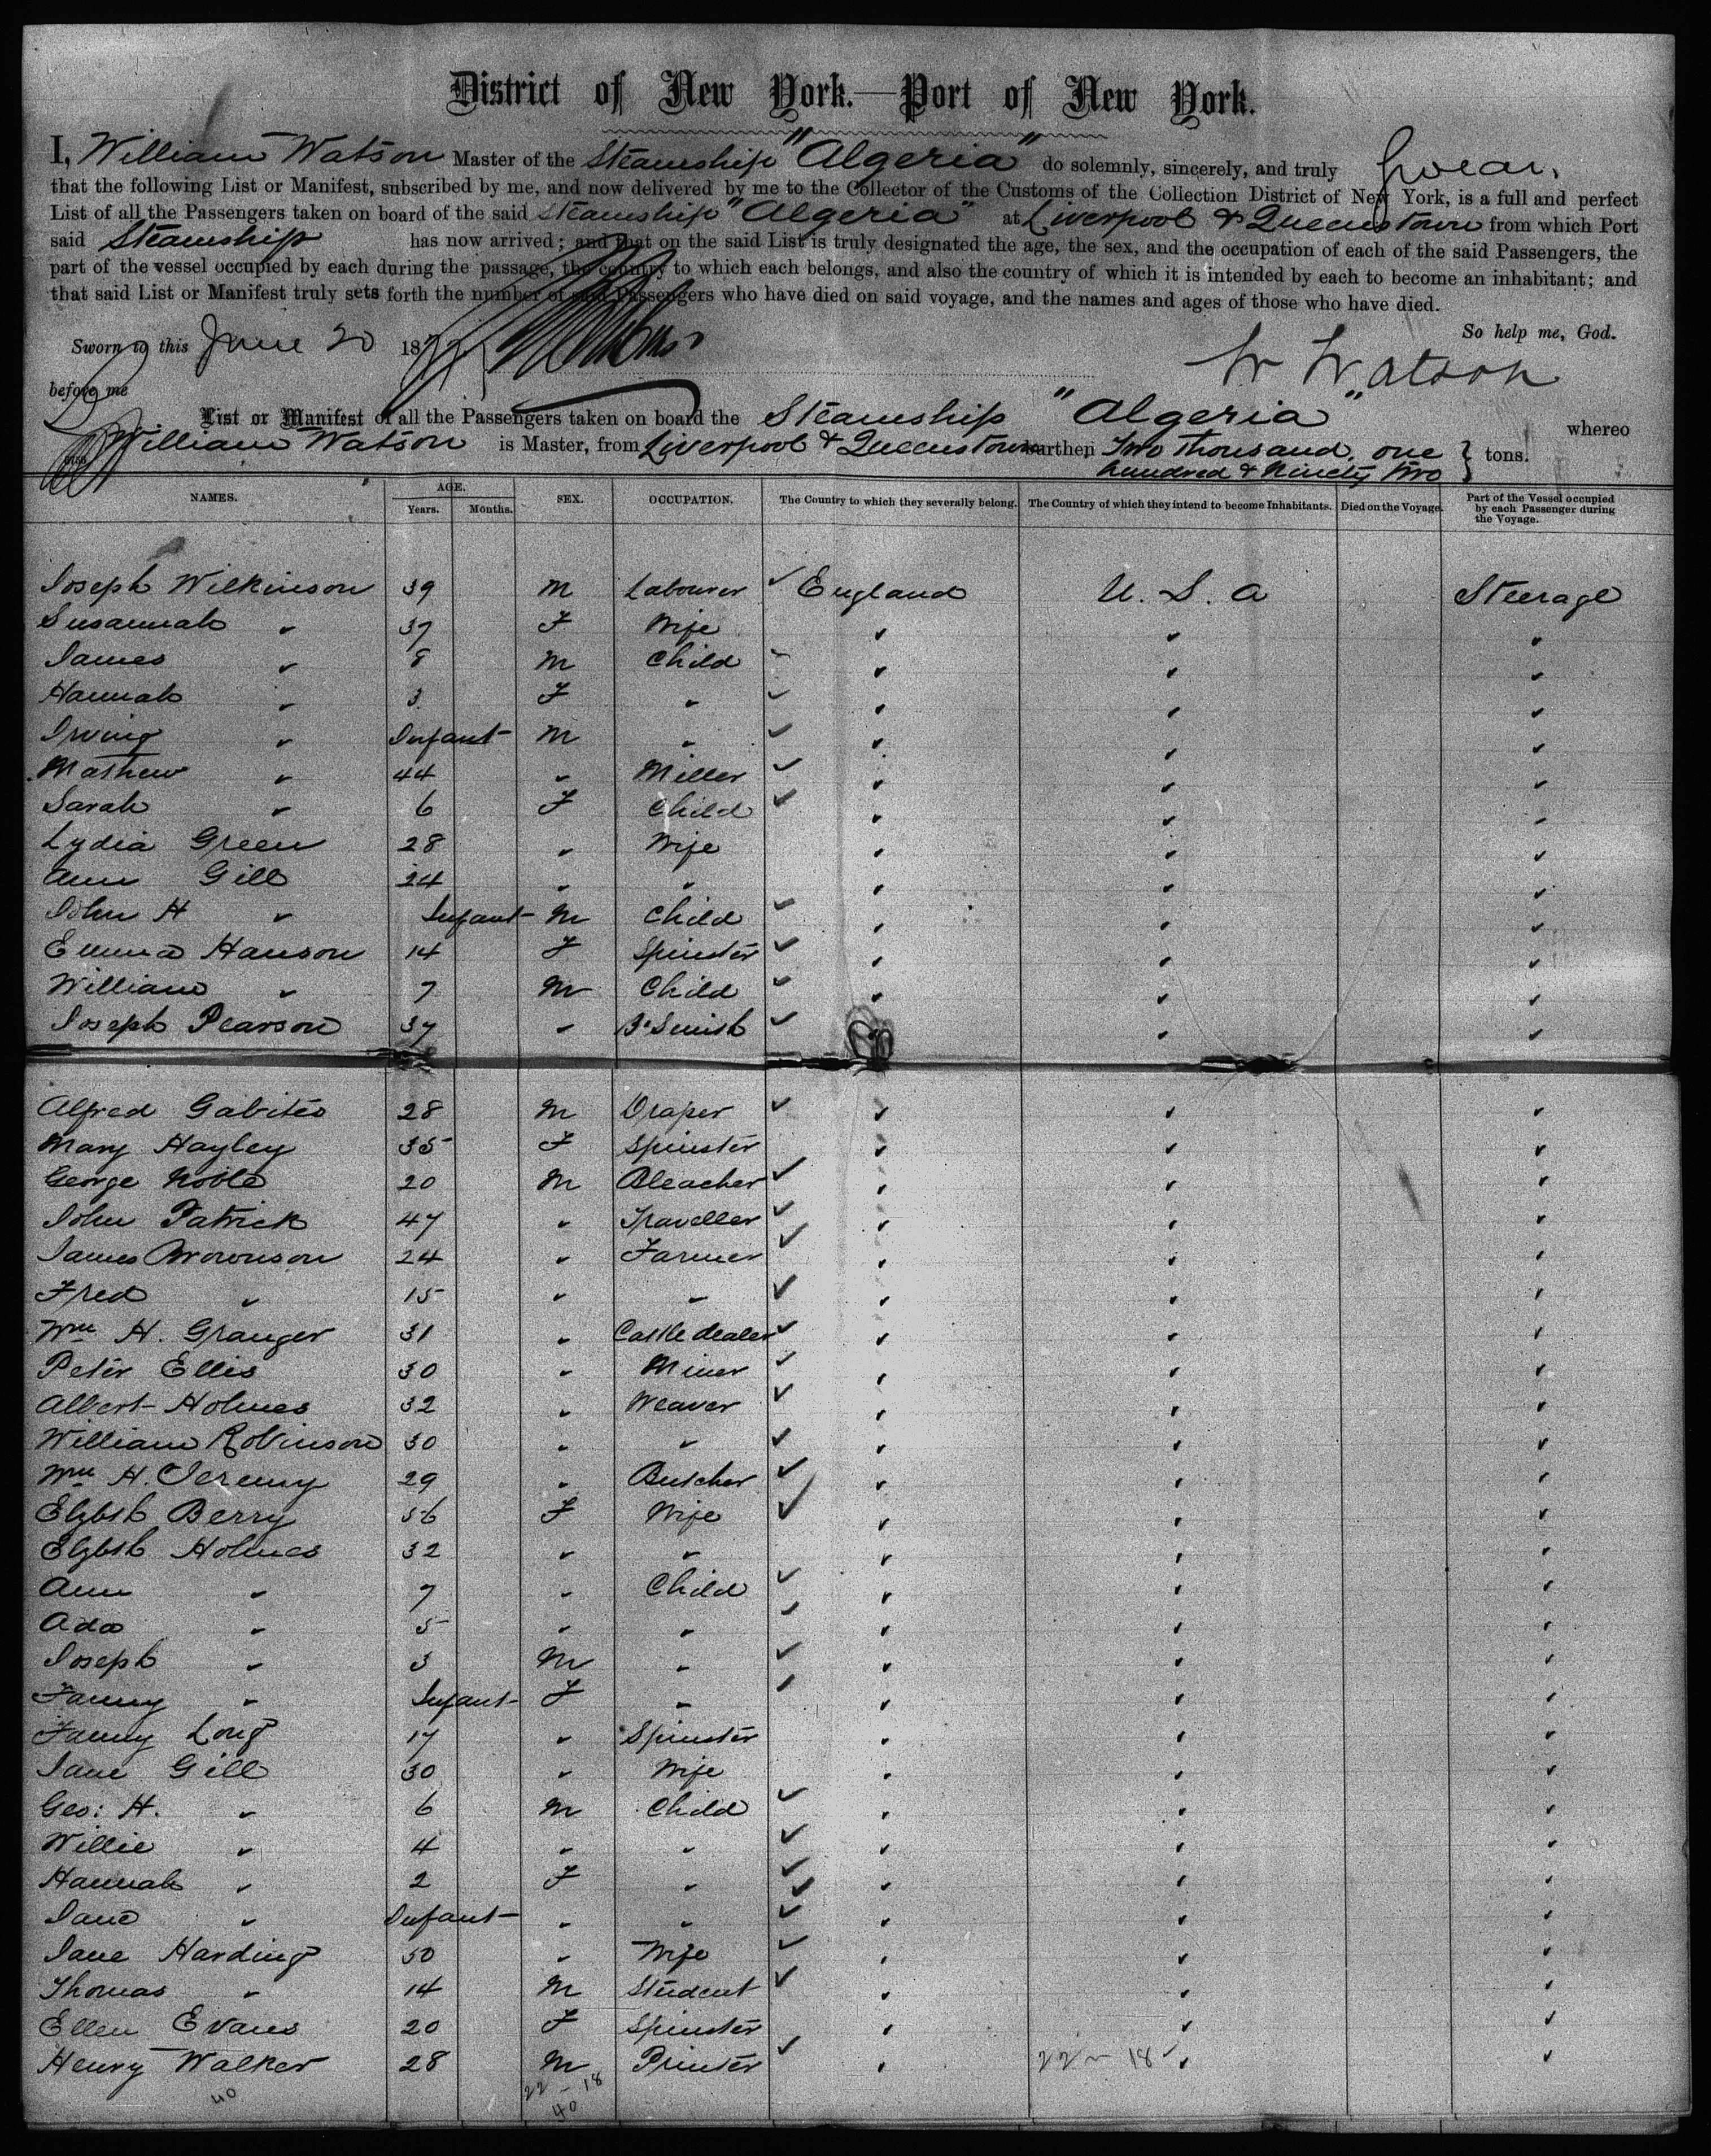 District of New York.—Port of New York.
I, William Watson Master of the Steamship "Algeria" do solemnly, sincerely, and truly swear,
that the following List or Manifest, subscribed by me, and now delivered by me to the Collector of the Customs of the Collection District of New York, is a full and perfect
List of all the Passengers taken on board of the said Steamship "Algeria" at Liverpool & Queenstown from which Port
said Steamship has now arrived; and that on the said List is truly designated the age, the sex, and the occupation of each of the said Passengers, the
part of the vessel occupied by each during the passage, the country to which each belongs, and also the country of which it is intended by each to become an inhabitant; and
that said List or Manifest truly sets forth the number of said Passengers who have died on said voyage, and the names and ages of those who have died.
So help me, God.
Sworn to this June 20 187
W Watson
before me
List or Manifest of all the Passengers taken on board the Steamship "Algeria" whereo
William Watson is Master, from Liverpool & Queenstown burthen Two thousand, one
hundred & Ninety two } tons.
NAMES. AGE. SEX. OCCUPATION. The Country to which they severally belong. The Country of which they intend to become Inhabitants. Died on the Voyage. Part of the Vessel occupied by each Passenger during the Voyage.
Years. Months.
Joseph Wilkinson 39 M Labourer ✓ England U. S. A Steerage
Susannah " 37 F Wife " " "
James " 8 M Child ✓ " " "
Hannah " 3 F " ✓ " " "
Irving " Infant M " ✓ " " "
Mathew " 44 " Miller ✓ " " "
Sarah " 6 F Child ✓ " " "
Lydia Green 28 " Wife " " "
Ann Gill 24 " " " " "
John H " Infant M Child ✓ " " "
Emma Hanson 14 F Spinster ✓ " " "
William " 7 M Child ✓ " " "
Joseph Pearson 37 " B'Smith ✓ " " "
Alfred Gabites 28 M Draper ✓ " " "
Mary Hayley 35 F Spinster " " "
George Noble 20 M Bleacher ✓ " " "
John Patrick 47 " Traveller ✓ " " "
James Brownson 24 " Farmer ✓ " " "
Fred " 15 " " ✓ " " "
Wm H. Granger 31 " Cattle dealer ✓ " " "
Peter Ellis 30 " Miner ✓ " " "
Albert Holmes 32 " Weaver ✓ " " "
William Robinson 30 " " ✓ " " "
Wm H. Jeremy 29 " Butcher ✓ " " "
Elzbth Berry 56 F Wife ✓ " " "
Elzbth Holmes 32 " " " " "
Ann " 7 " Child ✓ " " "
Ada " 5 " " ✓ " " "
Joseph " 3 M " ✓ " " "
Fanny " Infant F " ✓ " " "
Fanny Long 17 " Spinster " " "
Jane Gill 30 " Wife " " "
Geo: H. " 6 M Child ✓ " " "
Willie " 4 " " ✓ " " "
Hannah " 2 F " ✓ " " "
Jane " Infant " " ✓ " " "
Jane Harding 50 " Wife ✓ " " "
Thomas " 14 M Student ✓ " " "
Ellen Evans 20 F Spinster " " "
Henry Walker 28 M Printer ✓ " 22 – 18 " "
40 22 – 18
40